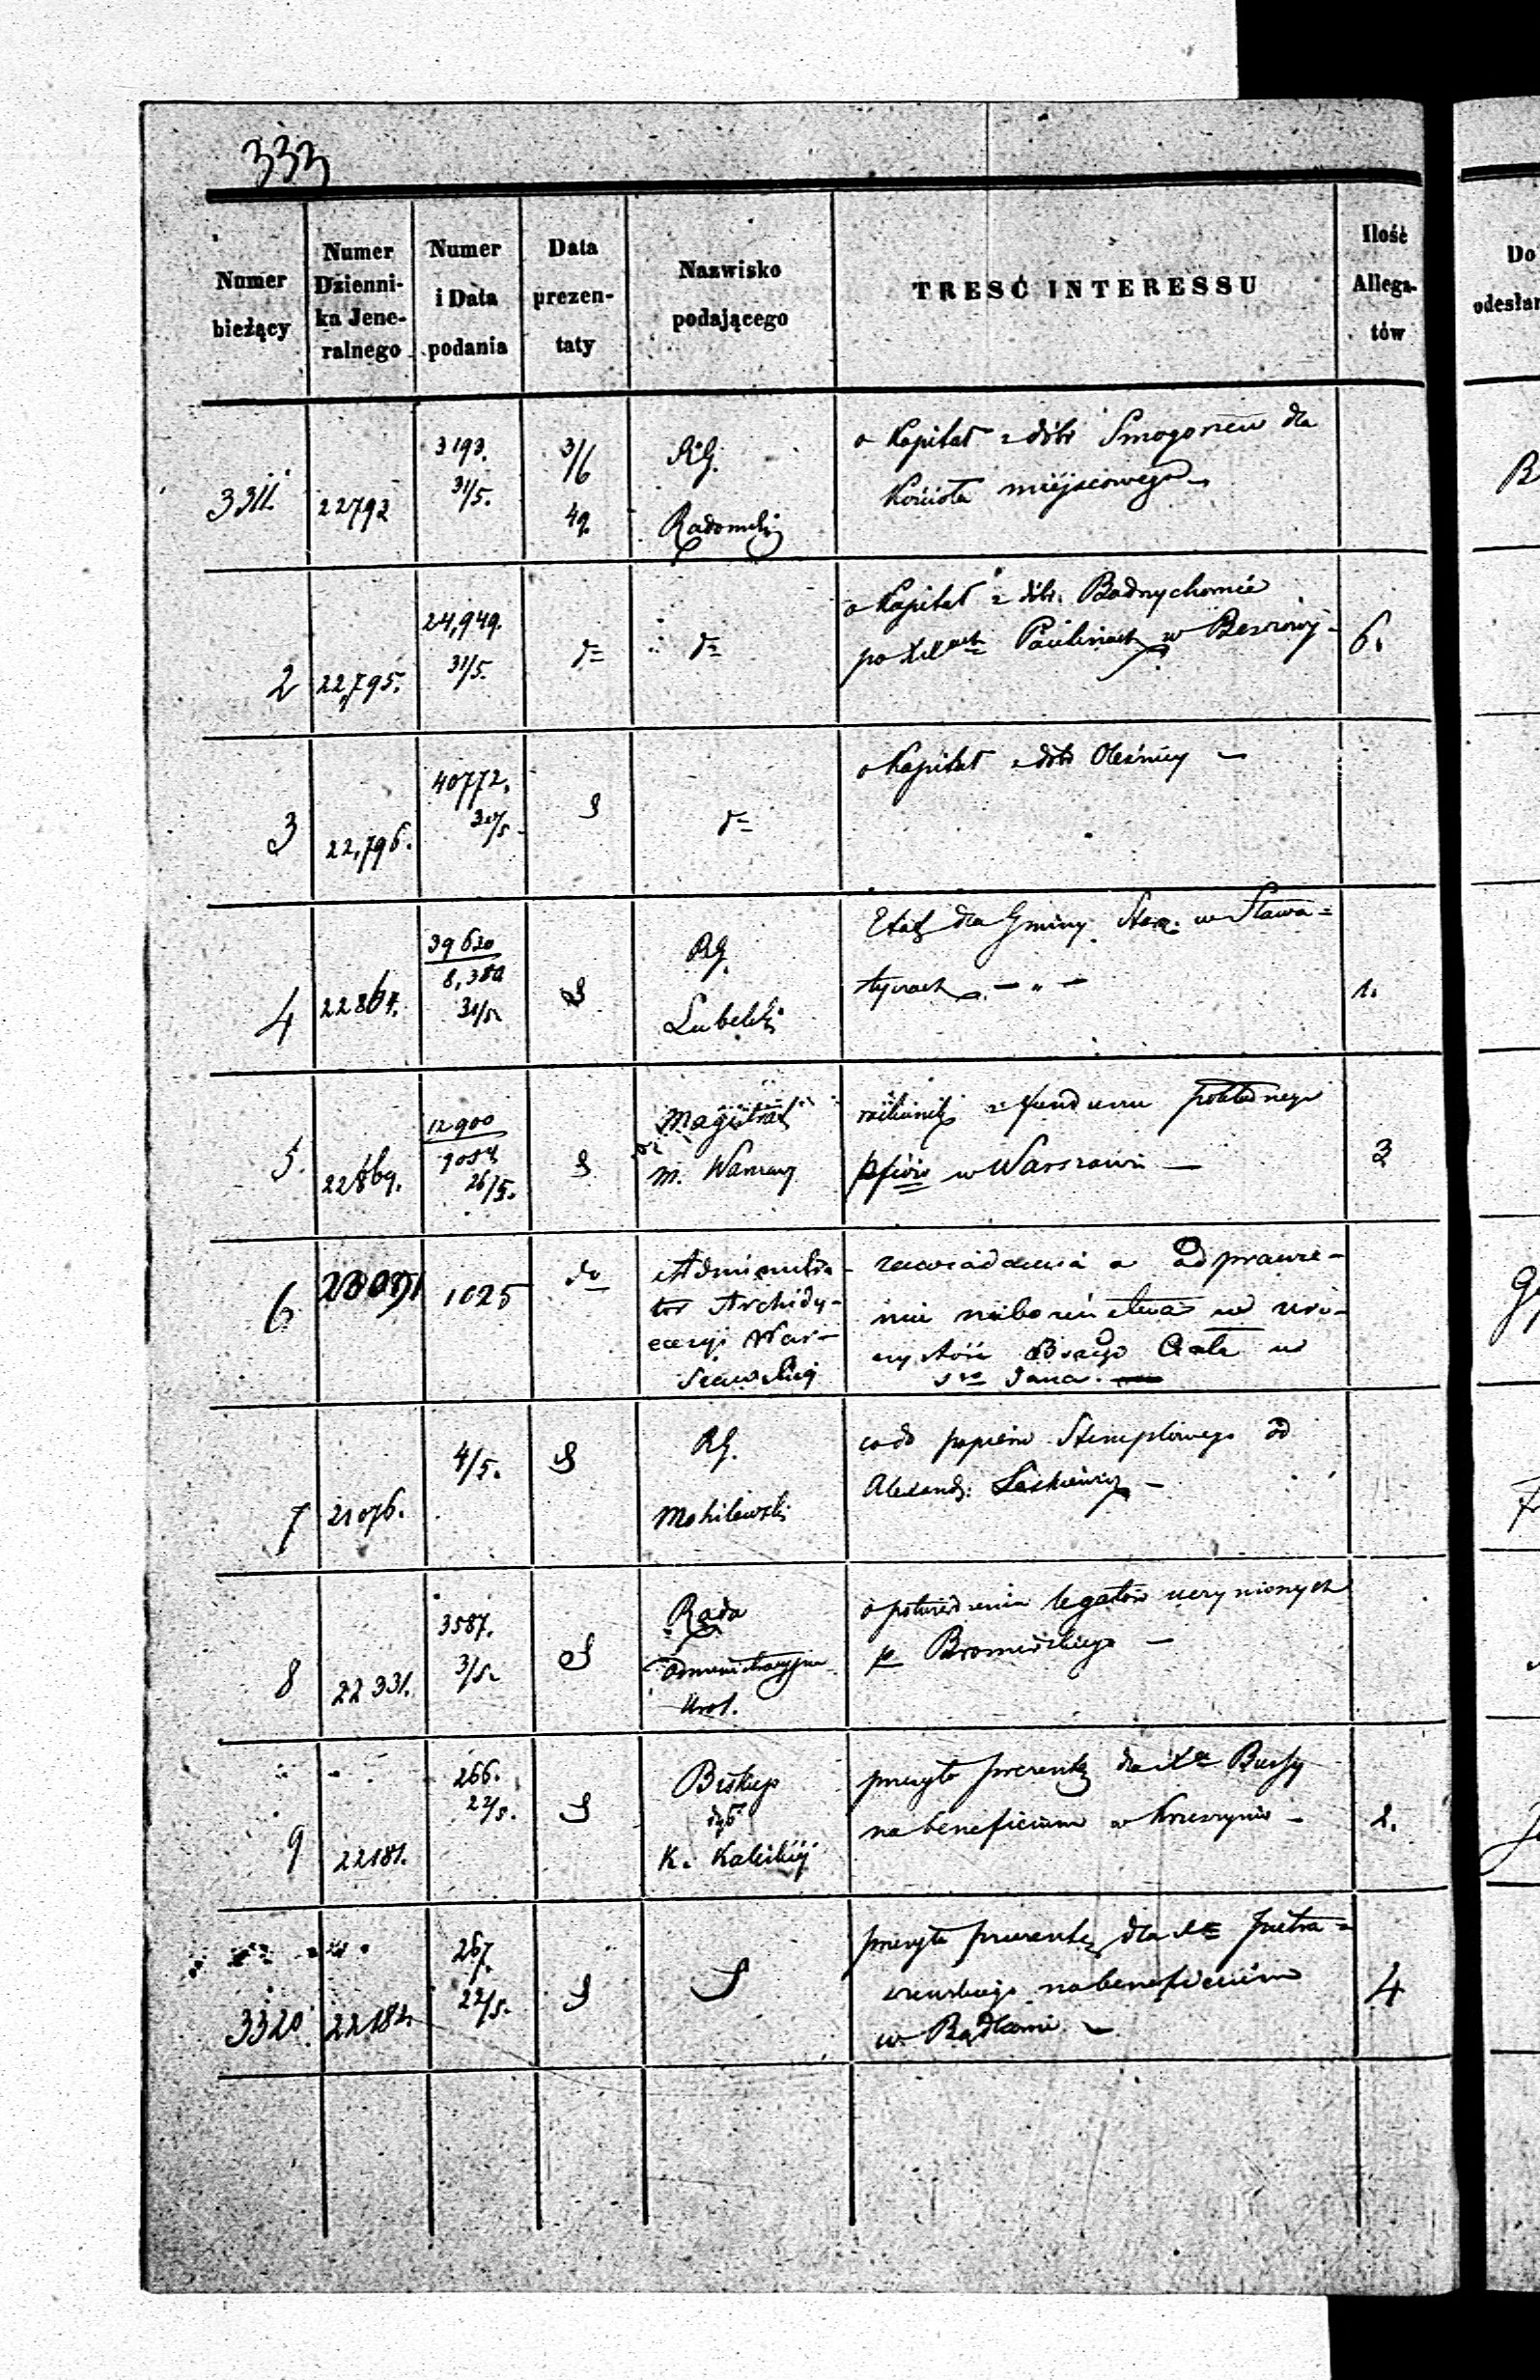 333
Numer bieżący
Numer Dzienni-ka Jene-ralnego
Numer i Data podania
Data prezen-taty
Nazwisko podającego
TRESĆ INTERESSU
Ilość Allega-tów
Do
odesłan
3311. 22792 3193. 31/5. 3/6 49. RG. Radomski
o Kapitał z dóbr Smogorzew dla
Kościoła miejscowego
2 22,795. 24,949. 31/5. do do
o Kapitał z dóbr
po XX Paulinach w 6.
3 22,796. 40772. do
o Kapitał z dóbr Oleśnicy —
4 22864. 39620 31/5 RG. Lubelski
Etat dla Gminy Star: w Sława=
tyczach — „ — 1.
5. 22869. 12900 26/5. Magistrat m. Warszawy
z funduszu pokładnego
w Warszawie — 3
6 1025 do Administra-
tor Archidy-
ecezyi War-
szawskiej
zawiadamia o odprawie-
niu nabożeństwa w uro-
czystość Bożego Ciała w
Sgo Jana.
7 21076. 4/5. RG. Mohilewski
co do papieru Stemplowego od
Alexand: Laskiewicz —
8 22331. 3587. 3/5. Rada
Administracyjna
Król.
o potwierdzenie legatów uczynionych
p. Bromirskiego —
9 22181. 266. 22/5. Biskup
dyec.
K. Kaliskiej
przesyła prezentę dla Xa
na beneficium w — 2.
3320. 22182. 267. 22/5.
przesyła prezentę dla Xa
na beneficium
w Bądkowie — 4